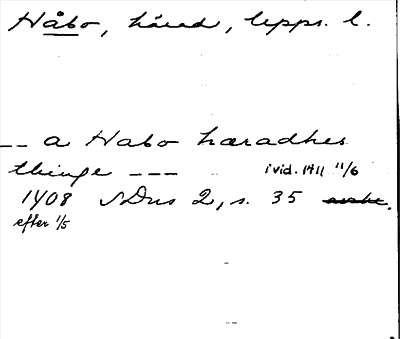 Håbo, härad, Upps. l.
-- a Habo hæradhes
thinge --- i vid. 1411 11/6
1408 SDns 2, s. 35
efter 1/5